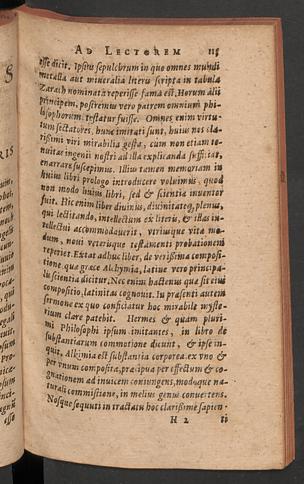 AD LECTOREM 115
esse dicit. Ipsius sepulchrum in quo omnes mundi
metalla aut mineralia literis scripta in tabula
Zaradi nominata reperisse fama est. Horum alii
principem, postremum vero patrem omnium phi-
losophorum testatur fuisse. Omnes enim virtu-
tum sectatores, hunc imitati sunt, huius nos cla-
rissimi viri mirabilia gesta, cum non etiam te-
nuitas ingenii nostri ad illa explicanda sufficiat,
enarrare suscepimus. Illius tamen memoriam in
huius libri prologo introducere voluimus, quod
non modo huius libri, sed & scientiæ inventor
fuit. Hic enim liber divinus, divinitateq, plenus,
qui lectitando, intellectum ex literis, & illas in-
tellectui accommodaverit, utriusque vita mo-
dum, novi veterisque testamenti probationem
reperiet. Extat adhuc liber, de verissima composi-
tione, qua græce Alchymia, latine vero principa-
lis scientia dicitur. Nec enim hactenus qua sit eius
compositio, latinitas cognovit. In præsenti autem
sermone ex quo conficiatur hoc mirabile myste-
rium clare patebit. Hermes & quam pluri-
mi Philosophi ipsum imitantes, in libro de
substantiarum commotione dicunt, & ipse in-
quit, Alkimia est substantia corporea ex uno &
per unum composita, præciosa per effectum & co-
gnationem ad invicem coniungens, modoque na-
turali commistione, in melius genus convertens.
Nosque sequuti in tractatu hoc clarissime sapien-
H 2 ti